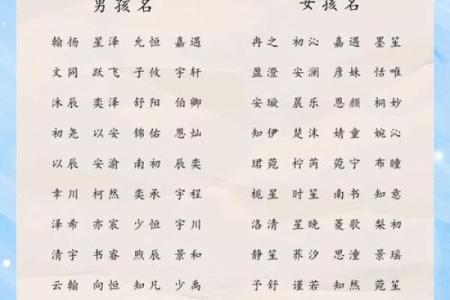 男孩名
翰扬 星泽 允恒 嘉遇
文同 跃飞 子攸 宇轩
沐辰 奕泽 舒阳 伯卿
初尧 以安 锦佑 恩灿
以辰 安渝 南初 辰奕
幸川 柯然 奕承 宇程
泽希 亦宸 少恒 宇川
清宇 书睿 煦辰 景和
云翰 向恒 知凡 少禹
女孩名
冉之 初沁 嘉遇 墨笙
盈澄 安澜 彦姝 恬唯
安璇 晨乐 思颜 桐妙
知伊 楚沫 婧童 婉沁
珺菀 柠芮 菀宁 布瞳
栀星 时笙 南书 知意
洛清 星晚 菱歌 梨初
静笙 荞汐 思潼 景瑶
予舒 谨若 知然 菀笙